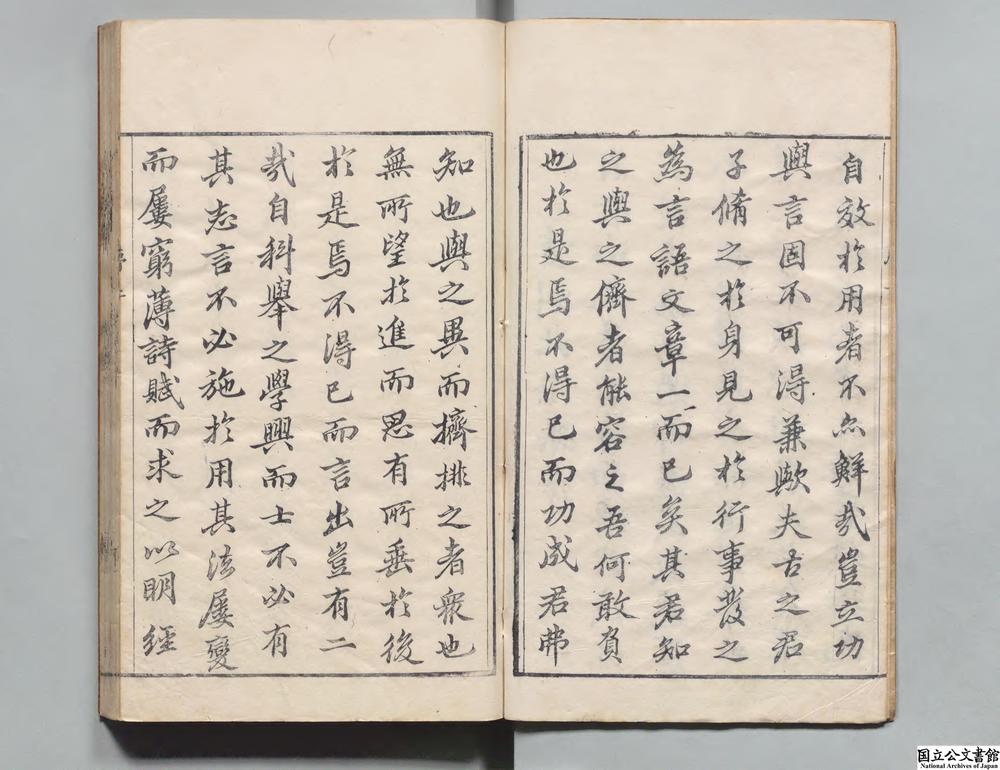 自效於用者不亦鮮哉豈立功
與言固不可得兼歟夫古之君
子脩之於身見之於行事發之
為言語文章一而已矣其君知
之與之儕者能容之吾何敢負
也於是焉不得已而功成君弗
知也與之異而擠排之者衆也
無所望於進而思有所垂於後
於是焉不得已而言出豈有二
哉自科舉之學興而士不必有
其志言不必施於用其法屢變
而屢窮薄詩賦而求之以明經
国立公文書館
National Archives of Japan